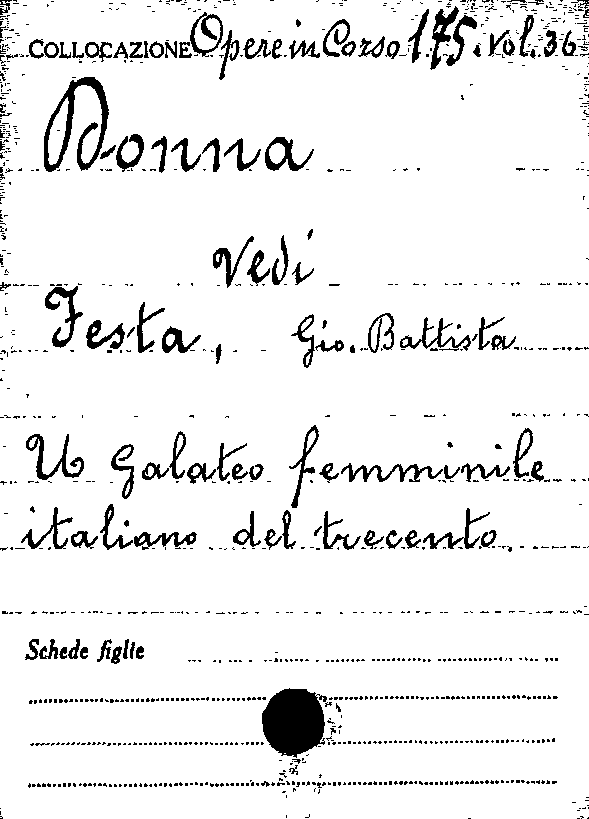 COLLOCAZIONE Opere in Corso 175. vol. 36
Donna
Vedi
Festa, Gio. Battista
Un Galateo femminile
italiano del trecento.
Schede figlie